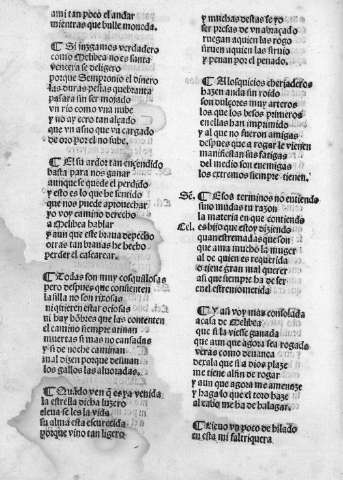 ami tan poco el andar
mientras que bulle moneda.
¶ Si juzgamos verdadero
como Melibea no es santa
vencera se de ligero
porque Sempronio el dinero
las duras peñas quebranta
passara sin ser mojado
un rio como vna nube
y no ay cerro tan alçado
que vn asno que va cargado
de oro por el no sube.
¶ El su ardor tan encendido
basta para nos ganar
aunque se quede el perdido
y esto es lo que he sentido
que nos puede aprouechar
yo voy camino derecho
a Melibea hablar
y aun que este braua de pecho
otras tan brauas he hecho
perder el cascarear.
¶ Todas son muy cosquillosas
pero despues que consienten
la silla no son rixosas
ni quieren estar ociosas
ni hay hõbres que las contenten
el camino siempre atinan
muertas si mas no cansadas
y si de noche caminan
mal dizen porque declinan
los gallos las aluoradas.
¶ Quãdo ven q̃ es ya venida
la estrella dicha luzero
elena se les la vida
su alma esta escurecida
porque vino tan ligero
y muchas destas se yo
ser presas de vn abraçado
ruegan aquien las rogo
siruen aquien las siruio
y penan por el penado.
¶ Alos quicios
hazen aunla sin roido
son dulçores muy arteros
los que los besos primeros
en ellas han imprimido
y al que no fueron amigas
despues que a rogar le vienen
manifiestan sus fatigas
del medio son enemigas
los extremos siempre tienen.
Sẽ. ¶ Esos terminos no entiendo
sino mudas tu razon
la materia en que contiendo
Cel. es hijo que estoy diziendo
quan estremadas que son
que ama mucho la muger
al de quien es requerida
o tiene gran mal querer
asi que siempre ha de ser
en el estremo metida
¶ Y asi voy mas consolada
a casa de Melibea
que si la viesse ganada
que aun que agora sea rogada
veras como denanea
dexala que si a dios plaze
me tiene al fin de rogar
y aun que agora me amenaze
y haga lo que el toro haze
al cabo me ha de halagar.
¶ Lleuo vn poco de hilado
en esta mi faltriquera